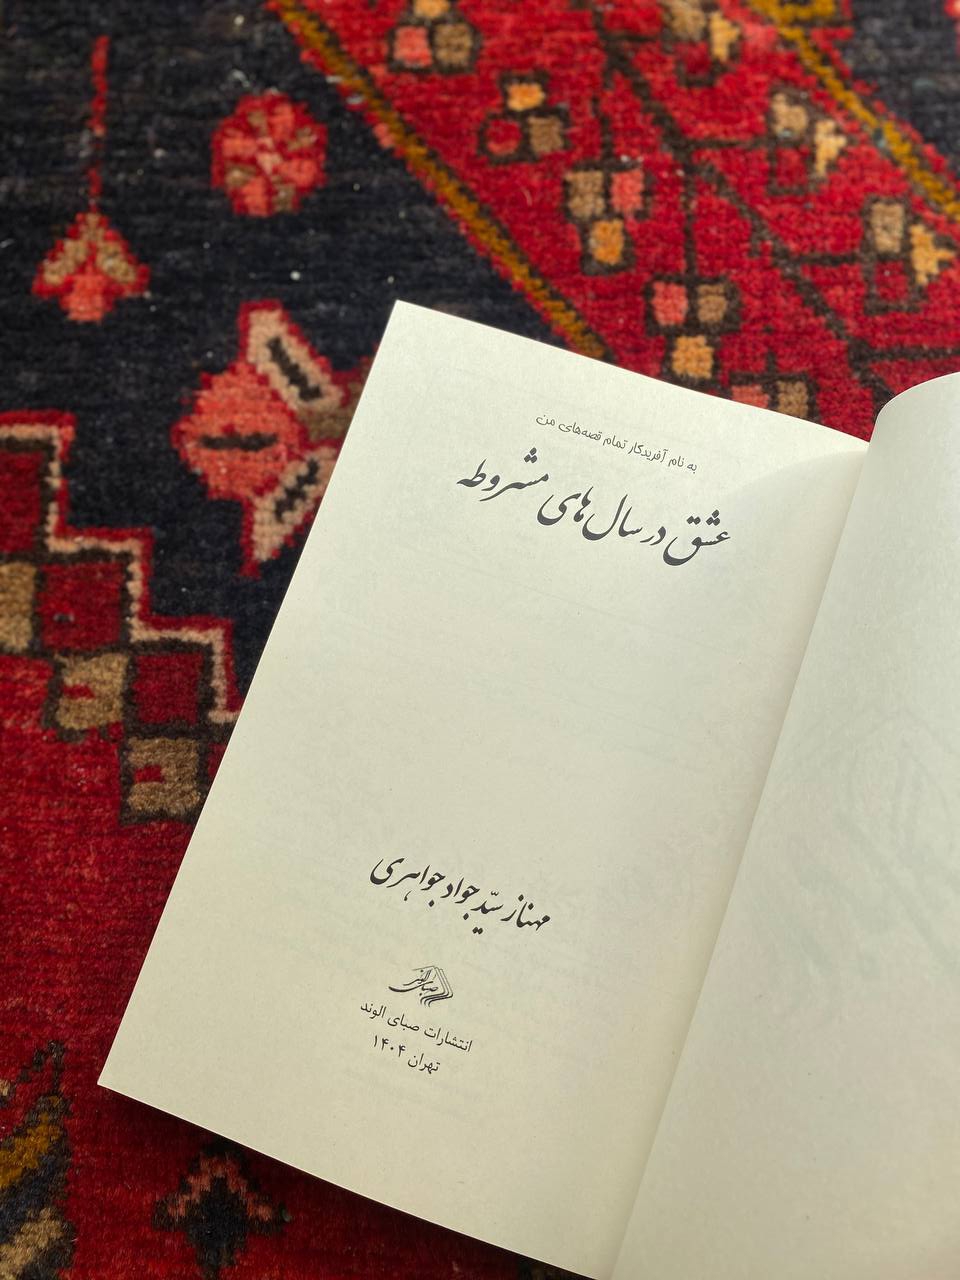 به نام آفریدکار تمام قصه‌های من
عشق در سال‌های مشروطه
مهناز سیّد جواد جواهری
صبای الوند
انتشارات صبای الوند
تهران ۱۴۰۴